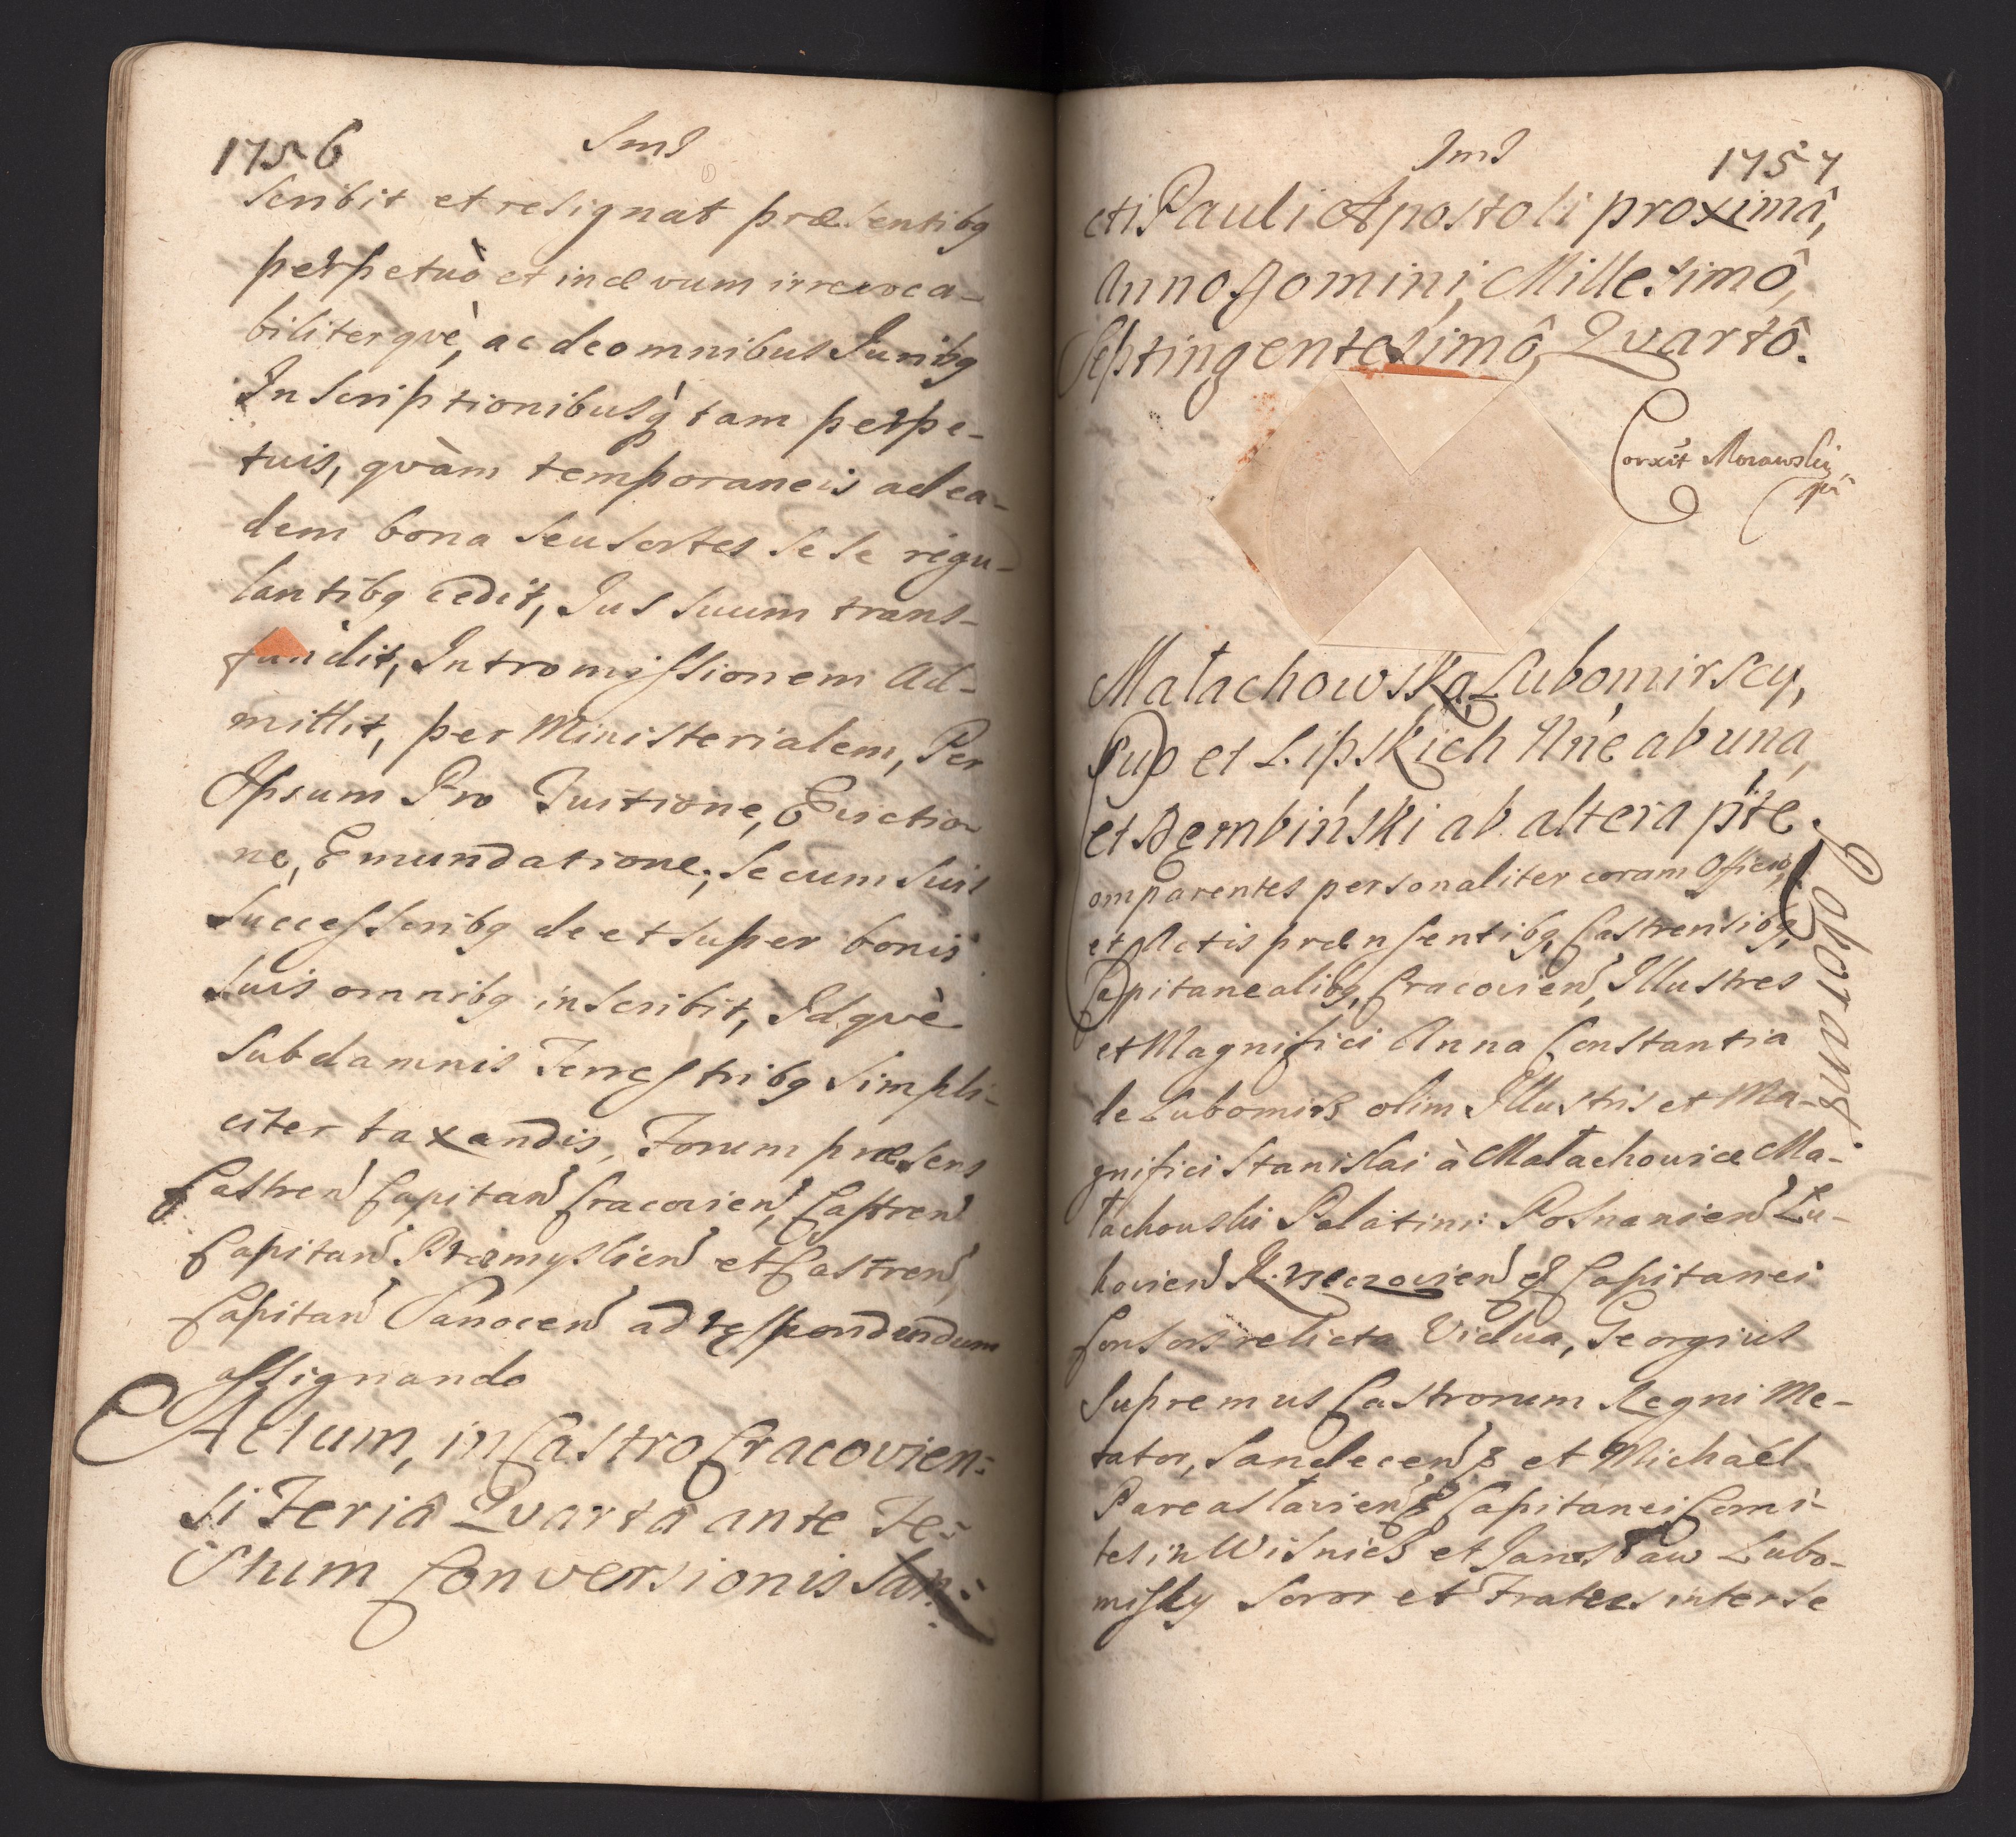 1756
Sms
scribit et resignat præsentibq
perpetuò et in ævum irrevoca-
biliterqvè, ac de omnibus Juribq
Inscriptionibusq̀ tam perpe-
tuis, qvàm temporaneis ad ea-
dem bona seu sortes se se regu-
lantibq cedit, Jus suum trans-
fundit, Intromissionem Ad-
mittit, per Ministerialem, Per
Ipsum Pro Tuitione, Evictio-
ne, Emundatione, se cum suis
Successoribq de et super bonis
suis omnibq inscribit, Idqvè
Sub damnis Terrestribq simpli-
citer taxandis, Forum præsens
Castren Capitan Cracovien, Castren
Capitan Præmyslien et Castren
Capitan Sanocen ad respondendum
assignando
Actum, in Castro Cracovien:
si Feriâ Qvartâ ante Fe-
stum Conversionis San:
Sms
1757
cti Pauli Apostoli proximâ,
Anno Domini, Millesimô,
Septingentesimô, Qvartô.
Corxit Morawski
Małachowska, Lubomirscy,
Pup et Lipskich Nne ab una,
et Dęmbiński ab altera pte.
Comparentes personaliter coram Officio
et Actis prænsentibq, Castrensibq,
Capitanealibq, Cracovien, Illustres
et Magnifici Anna Constantia
de Lubomirz olim Illustris et Ma-
gnifici Stanislai à Małachowice Ma-
łachowski Palatini Posnanien Lu-
Consors relicta Vidua, Georgius
Supremus Castrorum Regni Me-
tator, Sandecen et Michaël
Capitanei Comi-
tes in Wisnicz et Jarosław Lubo-
mirscy Soror et Fratres inter se
Roboratio.